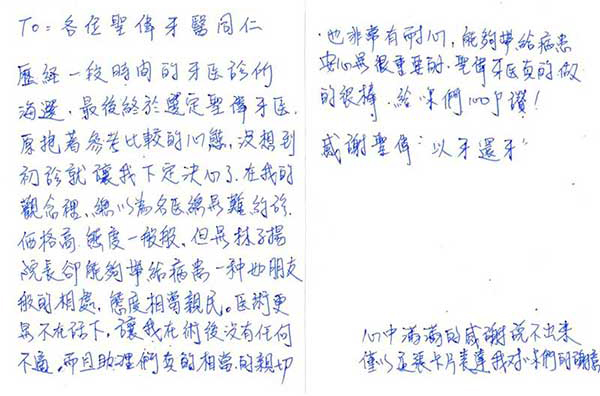 To：各位聖偉牙醫同仁
歷經一段時間的牙医診所
海選，最後終於選定聖偉牙医，
原抱著參考比較的心態，沒想到
初診就讓我下定決心了.在我的
觀念裡，總以為名医總是難約診.
価格高.態度一般般，但是林子揚
院長卻能夠帶給病患一種如朋友
般的相處，態度相當親民。医術更
是不在話下，讓我在術後沒有任何
不適，而且助理們真的相當的親切
，也非常有耐心，能夠帶給病患
安心是很重要的.聖偉牙医真的做
的很棒.給你們100个讚！
感謝聖偉"以牙還牙"
心中滿滿的感謝說不出來
僅以這張卡片表達我對你們的謝意